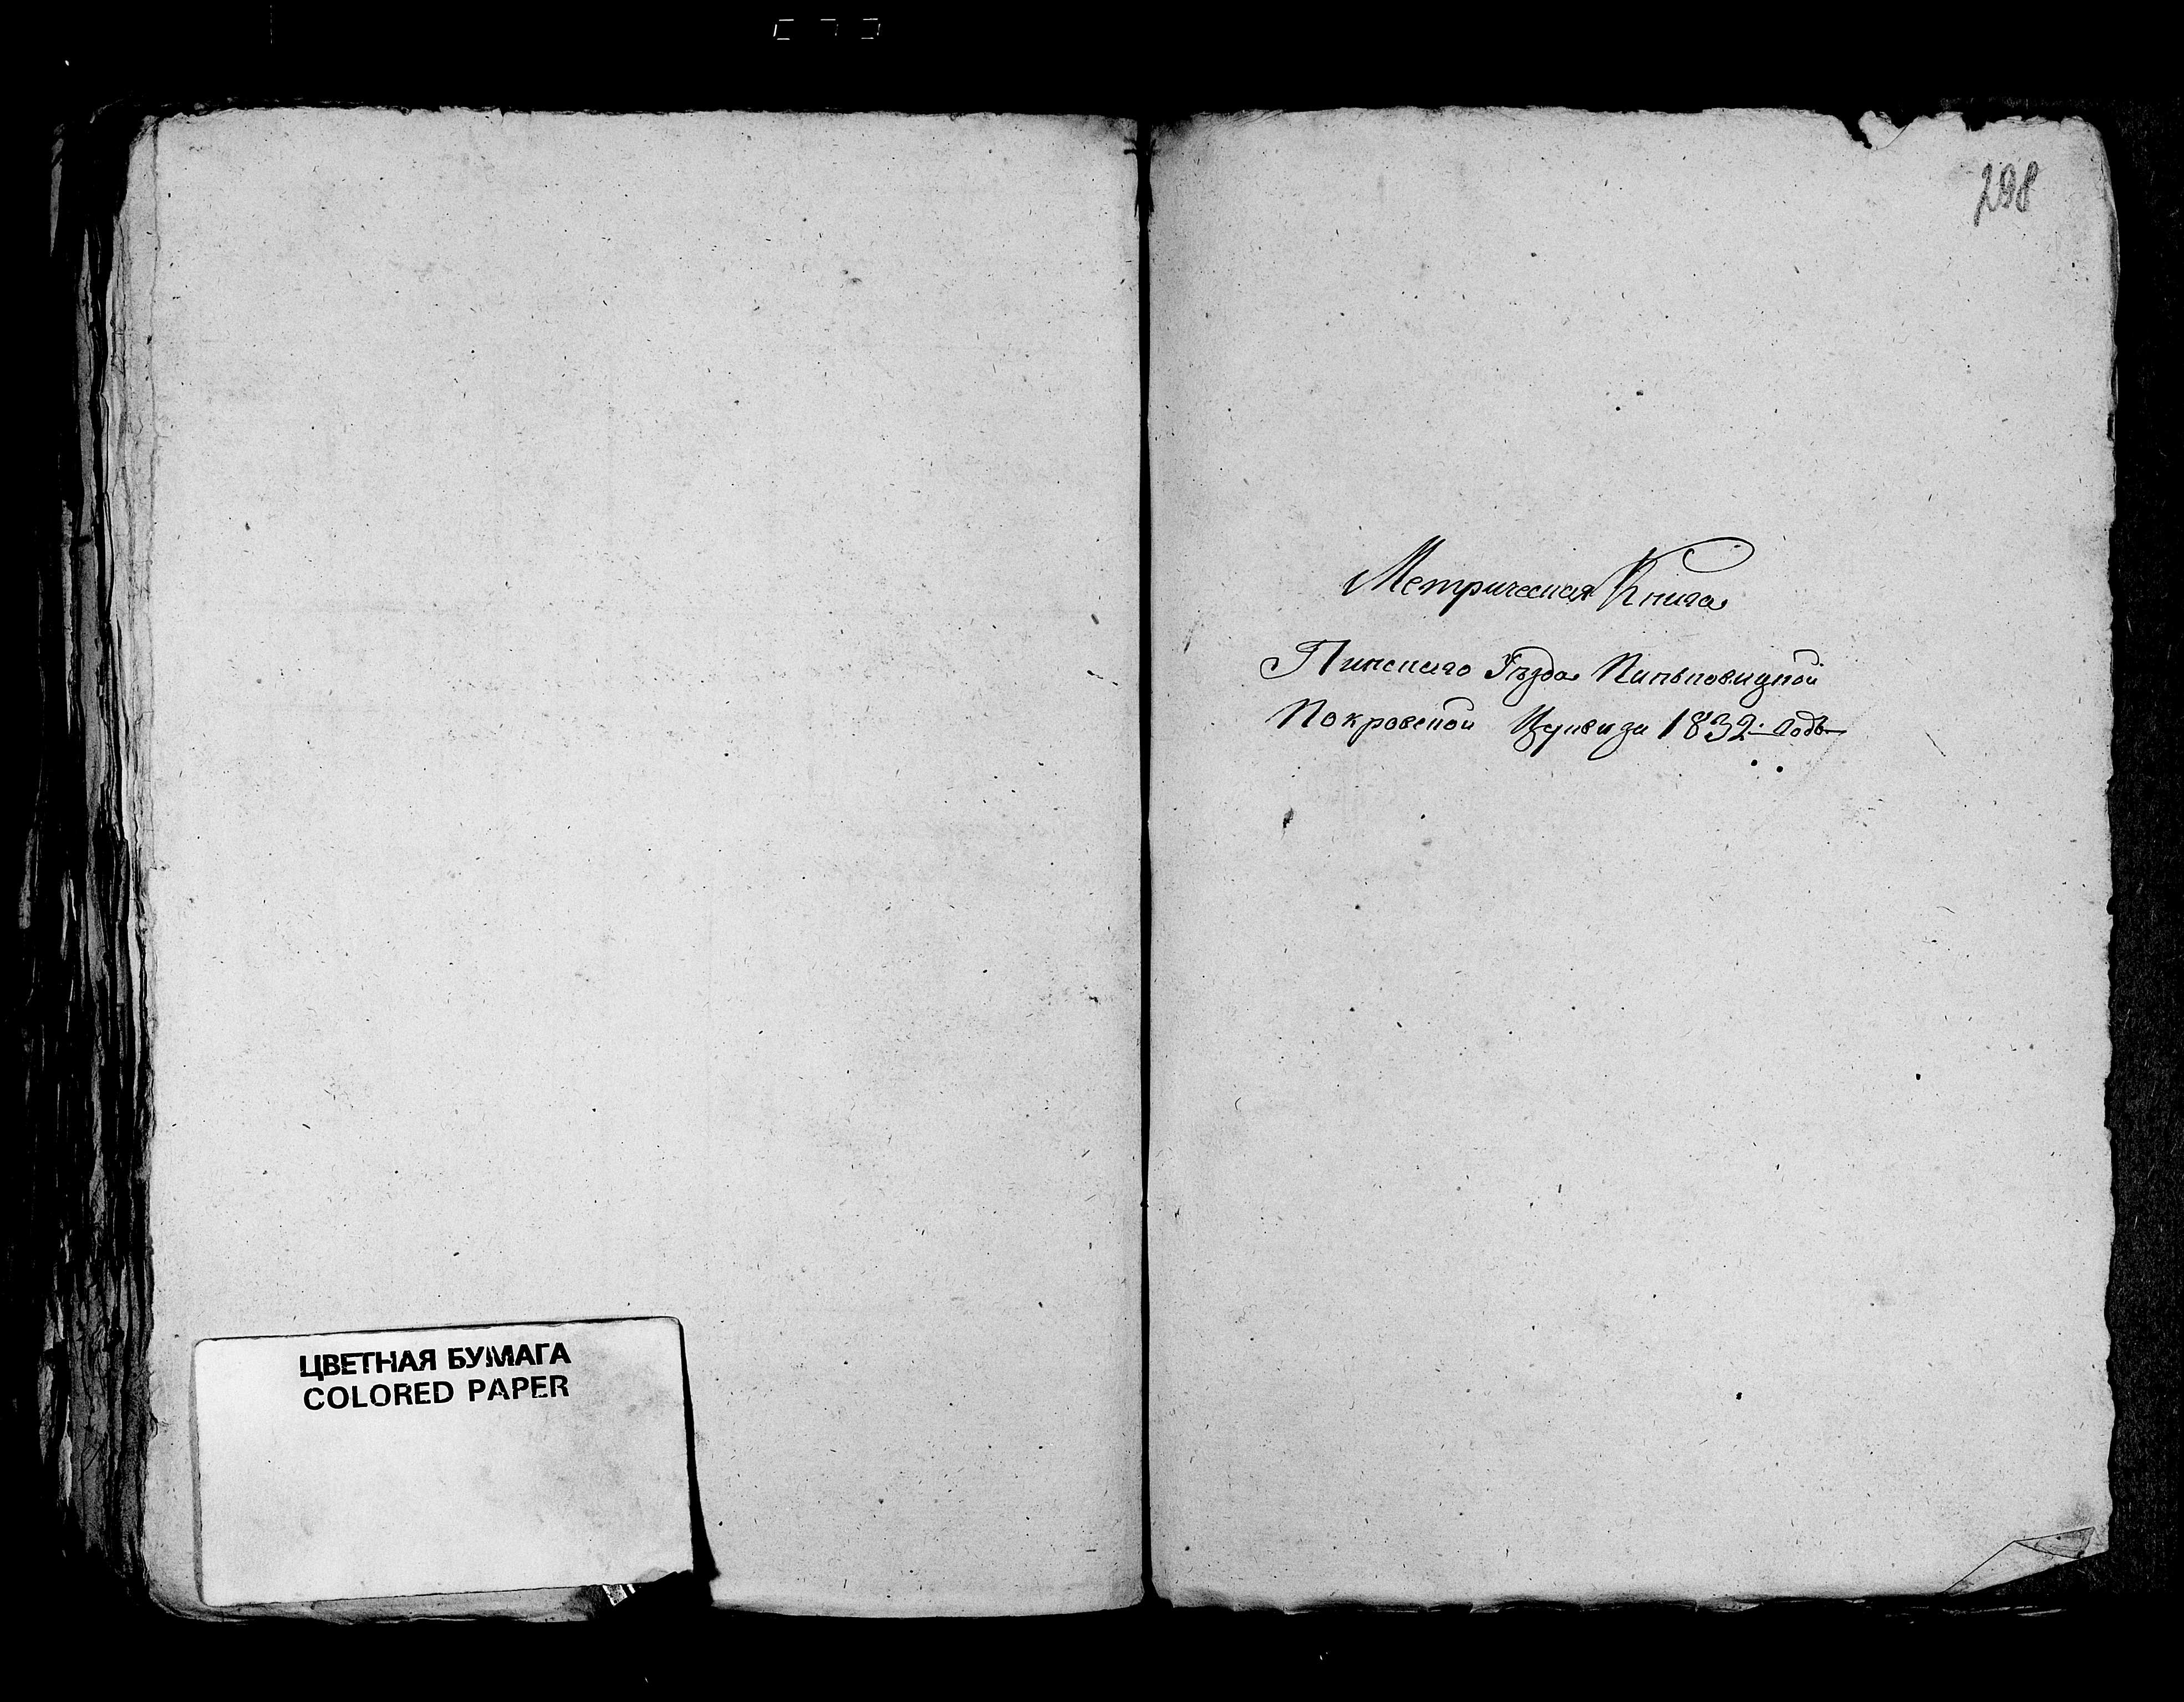 298
Метрическая Книга
Пинскаго Уѣзда
Покровской Церкви за 1832. Годъ
ЦВЕТНАЯ БУМАГА
COLORED PAPER